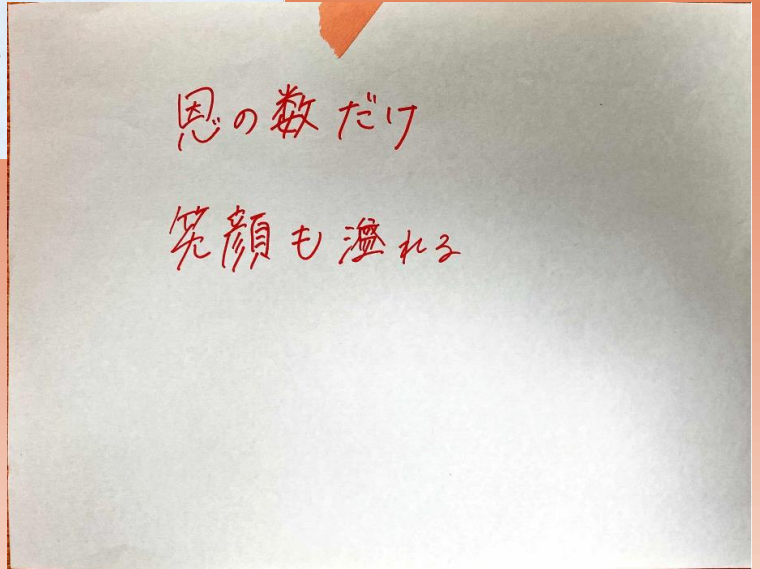 恩の数だけ
笑顔も溢れる